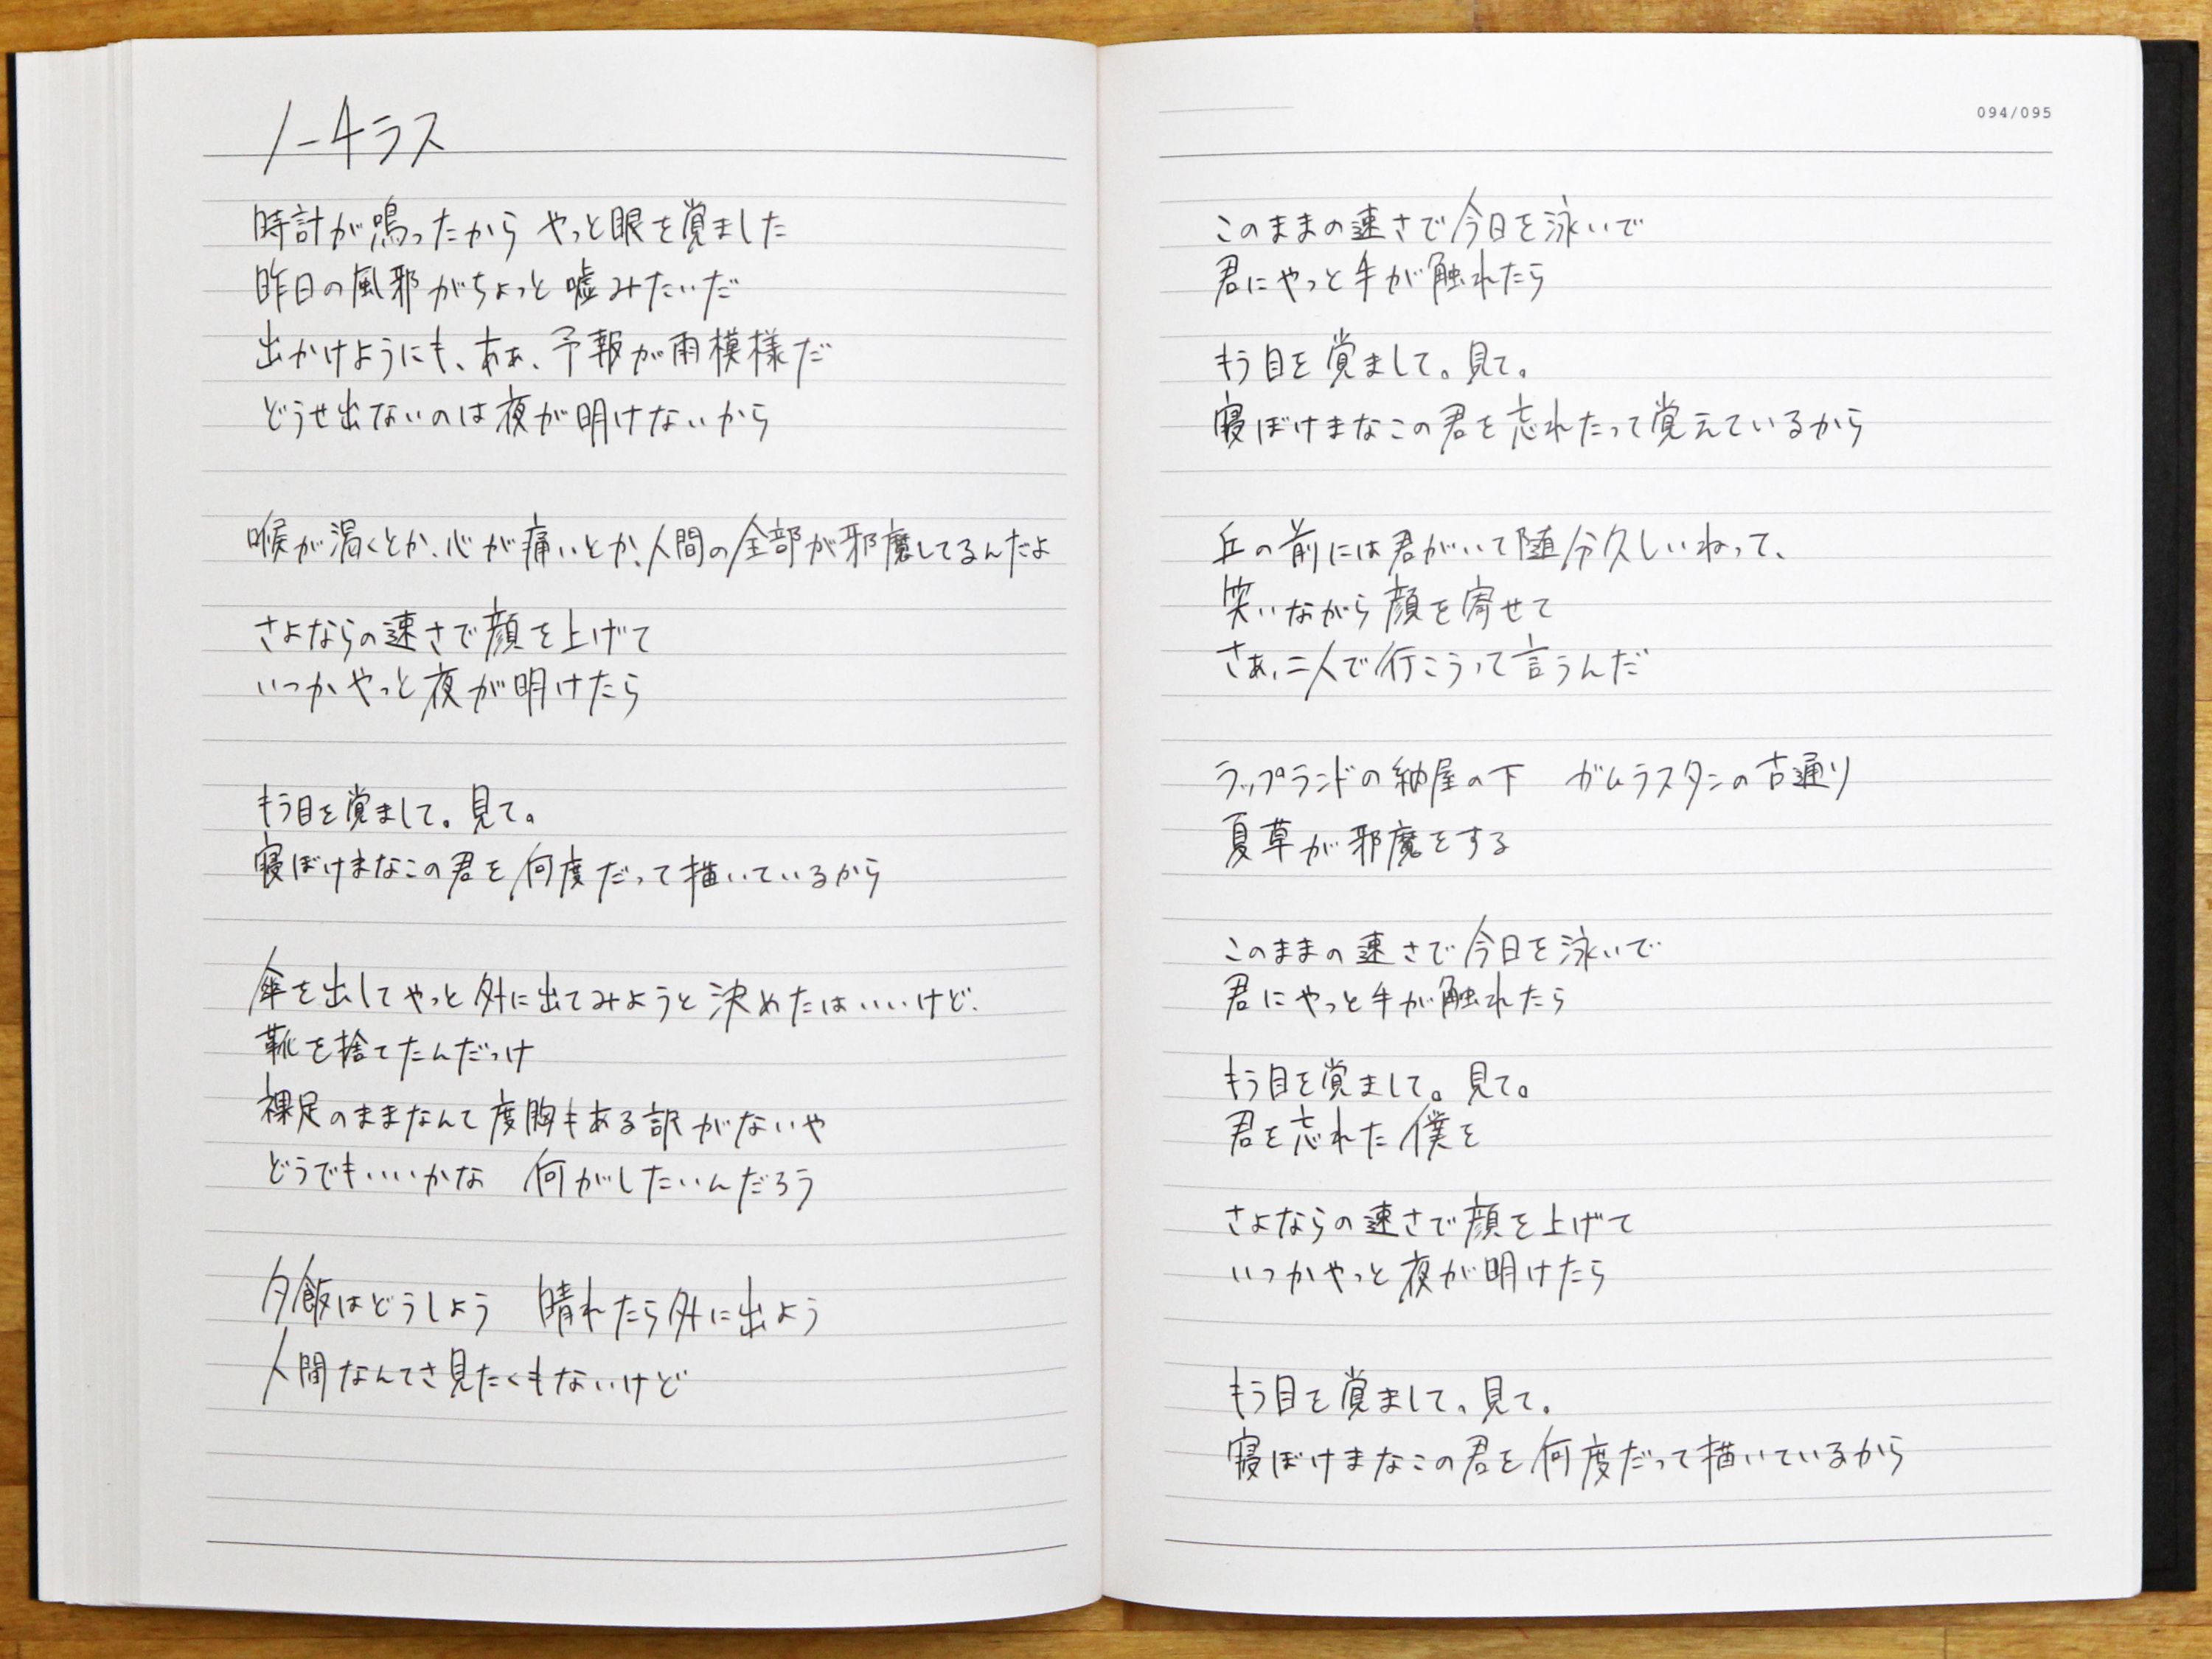 ノーチラス
時計が鳴ったから やっと眼を覚ました
昨日の風邪がちょっと嘘みたいだ
出かけようにも、あぁ、予報が雨模様だ
どうせ出ないのは夜が明けないから
喉が渇くとか、心が痛いとか、人間の全部が邪魔してるんだよ
さよならの速さで顔を上げて
いつかやっと夜が明けたら
もう目を覚まして。見て。
寝ぼけまなこの君を何度だって描いているから
傘を出してやっと外に出てみようと決めたはいいけど、
靴を捨てたんだっけ
裸足のままなんて度胸もある訳がないや
どうでもいいかな 何がしたいんだろう
夕飯はどうしよう 晴れたら外に出よう
人間なんてさ見たくもないけど
094/095
このままの速さで今日を泳いで
君にやっと手が触れたら
もう目を覚まして。見て。
寝ぼけまなこの君を忘れたって覚えているから
丘の前には君がいて随分久しいねって、
笑いながら顔を寄せて
さぁ、二人で行こうって言うんだ
ラップランドの納屋の下 ガムラスタンの古通り
夏草が邪魔をする
このままの速さで今日を泳いで
君にやっと手が触れたら
もう目を覚まして。見て。
君を忘れた僕を
さよならの速さで顔を上げて
いつかやっと夜が明けたら
もう目を覚まして。見て。
寝ぼけまなこの君を何度だって描いているから